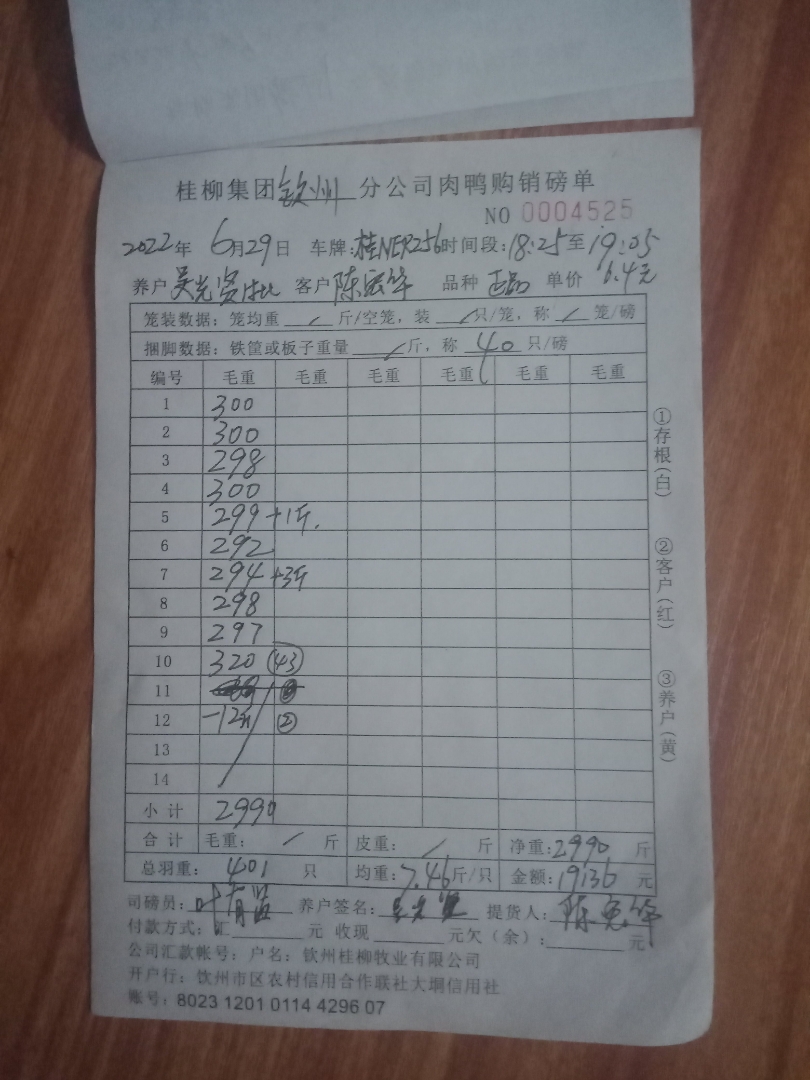 桂柳集团钦州分公司肉鸭购销磅单
NO 0004525
2022年 6月29日 车牌:桂NER256时间段:18:25至19:05
养户吴光贤 客户陈宏华 品种 正品 单价 6.4元
笼装数据: 笼均重 / 斤/空笼, 装 / 只/笼, 称 / 笼/磅
捆脚数据: 铁筐或板子重量 / 斤, 称 40 只/磅
编号 毛重 毛重 毛重 毛重 毛重 毛重
1 300
2 300
3 298
4 300
5 299 +1斤.
6 292
7 294 +3斤
8 298
9 297
10 320 (43)
11
12 -12斤 ②
13
14
小计 2990
合计 毛重: / 斤 皮重: / 斤 净重:2990 斤
总羽重: 401 只 均重:7.46斤/只 金额:19136 元
司磅员: 养户签名: 吴光贤 提货人: 陈宏华
付款方式: 汇 元 收现 元欠(余): 元
公司汇款帐号: 户名: 钦州桂柳牧业有限公司
开户行: 钦州市区农村信用合作联社大垌信用社
账号: 8023 1201 0114 4296 07
①存根(白)
②客户(红)
③养户(黄)